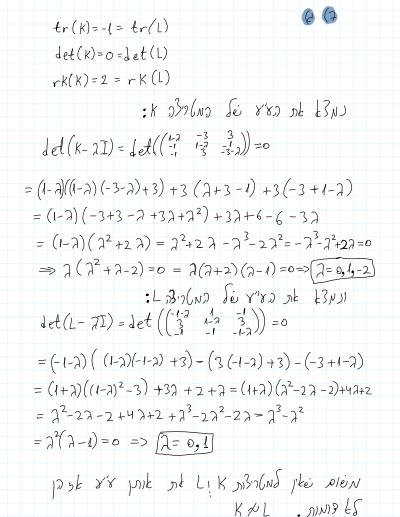 tr(K)=-1 = tr(L)
det(K)=0=det(L)
rK(K)=2 = rK(L)
נמצא את הע"ע של המטריצה K:
det(K-λI)=det((1-λ -3 3
-1 1-λ -1
-1 3 -3-λ))=0
=(1-λ)((1-λ)(-3-λ)+3)+3(λ+3-1)+3(-3+1-λ)
=(1-λ)(-3+3-λ+3λ+λ²)+3λ+6-6-3λ
=(1-λ)(λ²+2λ)=λ²+2λ-λ³-2λ²=-λ³-λ²+2λ=0
⇒ λ(λ²+λ-2)=0 = λ(λ+2)(λ-1)=0 ⇒ λ=0,1,-2
ונמצא את הע"ע של המטריצה L:
det(L-λI)=det((-1-λ 1 -1
3 1-λ 3
-1 -1 -1-λ))=0
=(-1-λ)((1-λ)(-1-λ)+3)-(3(-1-λ)+3)-(-3+1-λ)
=(1+λ)((1-λ)²-3)+3λ+2+λ=(1+λ)(λ²-2λ-2)+4λ+2
=λ²-2λ-2+4λ+2+λ³-2λ²-2λ=λ³-λ²
=λ²(λ-1)=0 ⇒ λ=0,1
משום שאין למטריצות K ו L את אותן ע"ע אז הן
לא דומות. K≁L